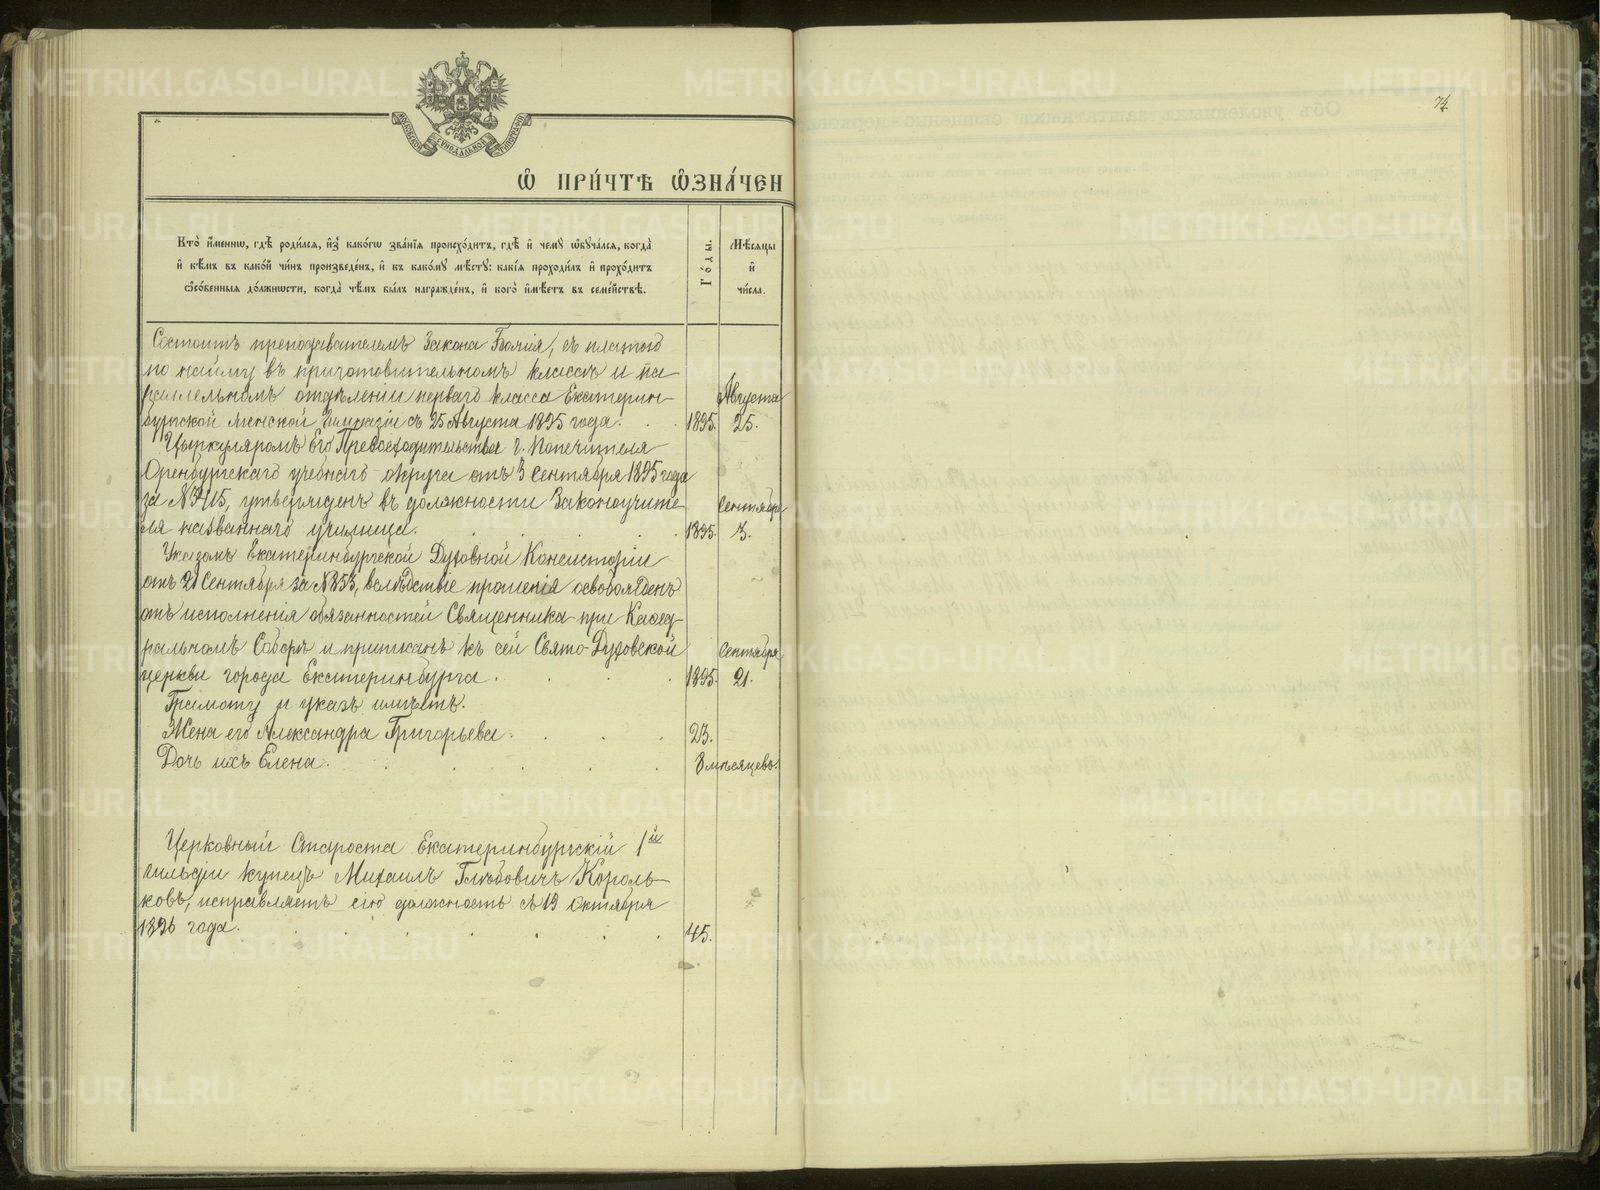 74
МОСКОВСКОЙ СѴНОДАЛЬНОЙ ТИПОГРАФІИ
Ѡ ПРИ́ЧТѢ ѠЗНА́ЧЕН
Кто̀ и҆́меннѡ, гдѣ̀ роди́лся, и҆з̾ како́гѡ зва́нїя происхо́дитъ, гдѣ̀ и҆ чему̀ ѡ҆буча́лся, когда̀
и҆ кѣ́мъ въ како́й чи́нъ произведе́нъ, и҆ къ како́му мѣ́сту: какі́я проходи́лъ и҆ прохо́дитъ
ѻ҆со́бенныя до́лжности, когда̀ чѣ́мъ бы́лъ награжде́нъ, и҆ кого̀ и҆мѣ́етъ въ семе́йствѣ.
Го́ды.
Мѣ́сяцы
и҆
чи́сла.
Состоитъ преподавателемъ Закона Божія, съ платою
по найму въ приготовительномъ классѣ и па-
раллельномъ отдѣленіи перваго класса Екатерин-
бургской женской гимназіи съ 25 Августа 1895 года. 1895. Августа 25.
Циркуляромъ Его Превосходительства г. Попечителя
Оренбургскаго учебнаго округа отъ 3 Сентября 1895 года
за № 4115, утвержденъ въ должности Законоучите-
ля названнаго училища. 1895. Сентября 3.
Указомъ Екатеринбургской Духовной Консисторіи
отъ 21 Сентября за № 8353, вслѣдствіе прошенія освобожденъ
отъ исполненія обязанностей Священника при Каѳед-
ральномъ Соборѣ и приписанъ къ сей Свято-Духовской
церкви города Екатеринбурга. 1895. Сентября 21.
Грамоту и указъ имѣетъ.
Жена его Александра Григорьева. 23.
Дочь ихъ Елена. 8 мѣсяцевъ.
Церковный Староста Екатеринбургскій 1й
гильдіи купецъ Михаилъ Глѣбовичъ Король-
ковъ, исправляетъ сію должность съ 19 Октября
1896 года. 45.
METRIKI.GASO-URAL.RU